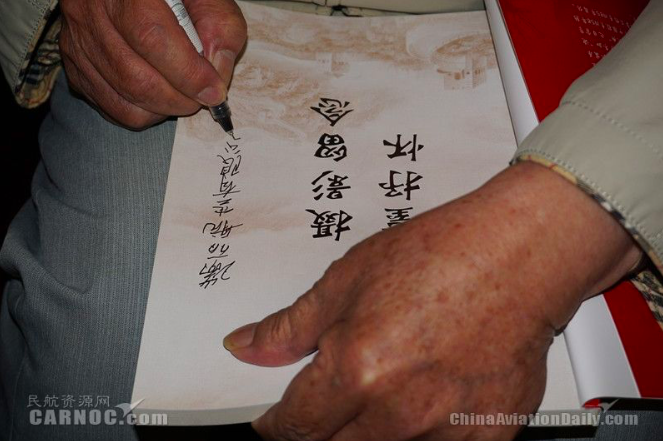 瑞丽航空有限公
摄影留念
抒怀
民航资源网
CARNOC.com
ChinaAviationDaily.com